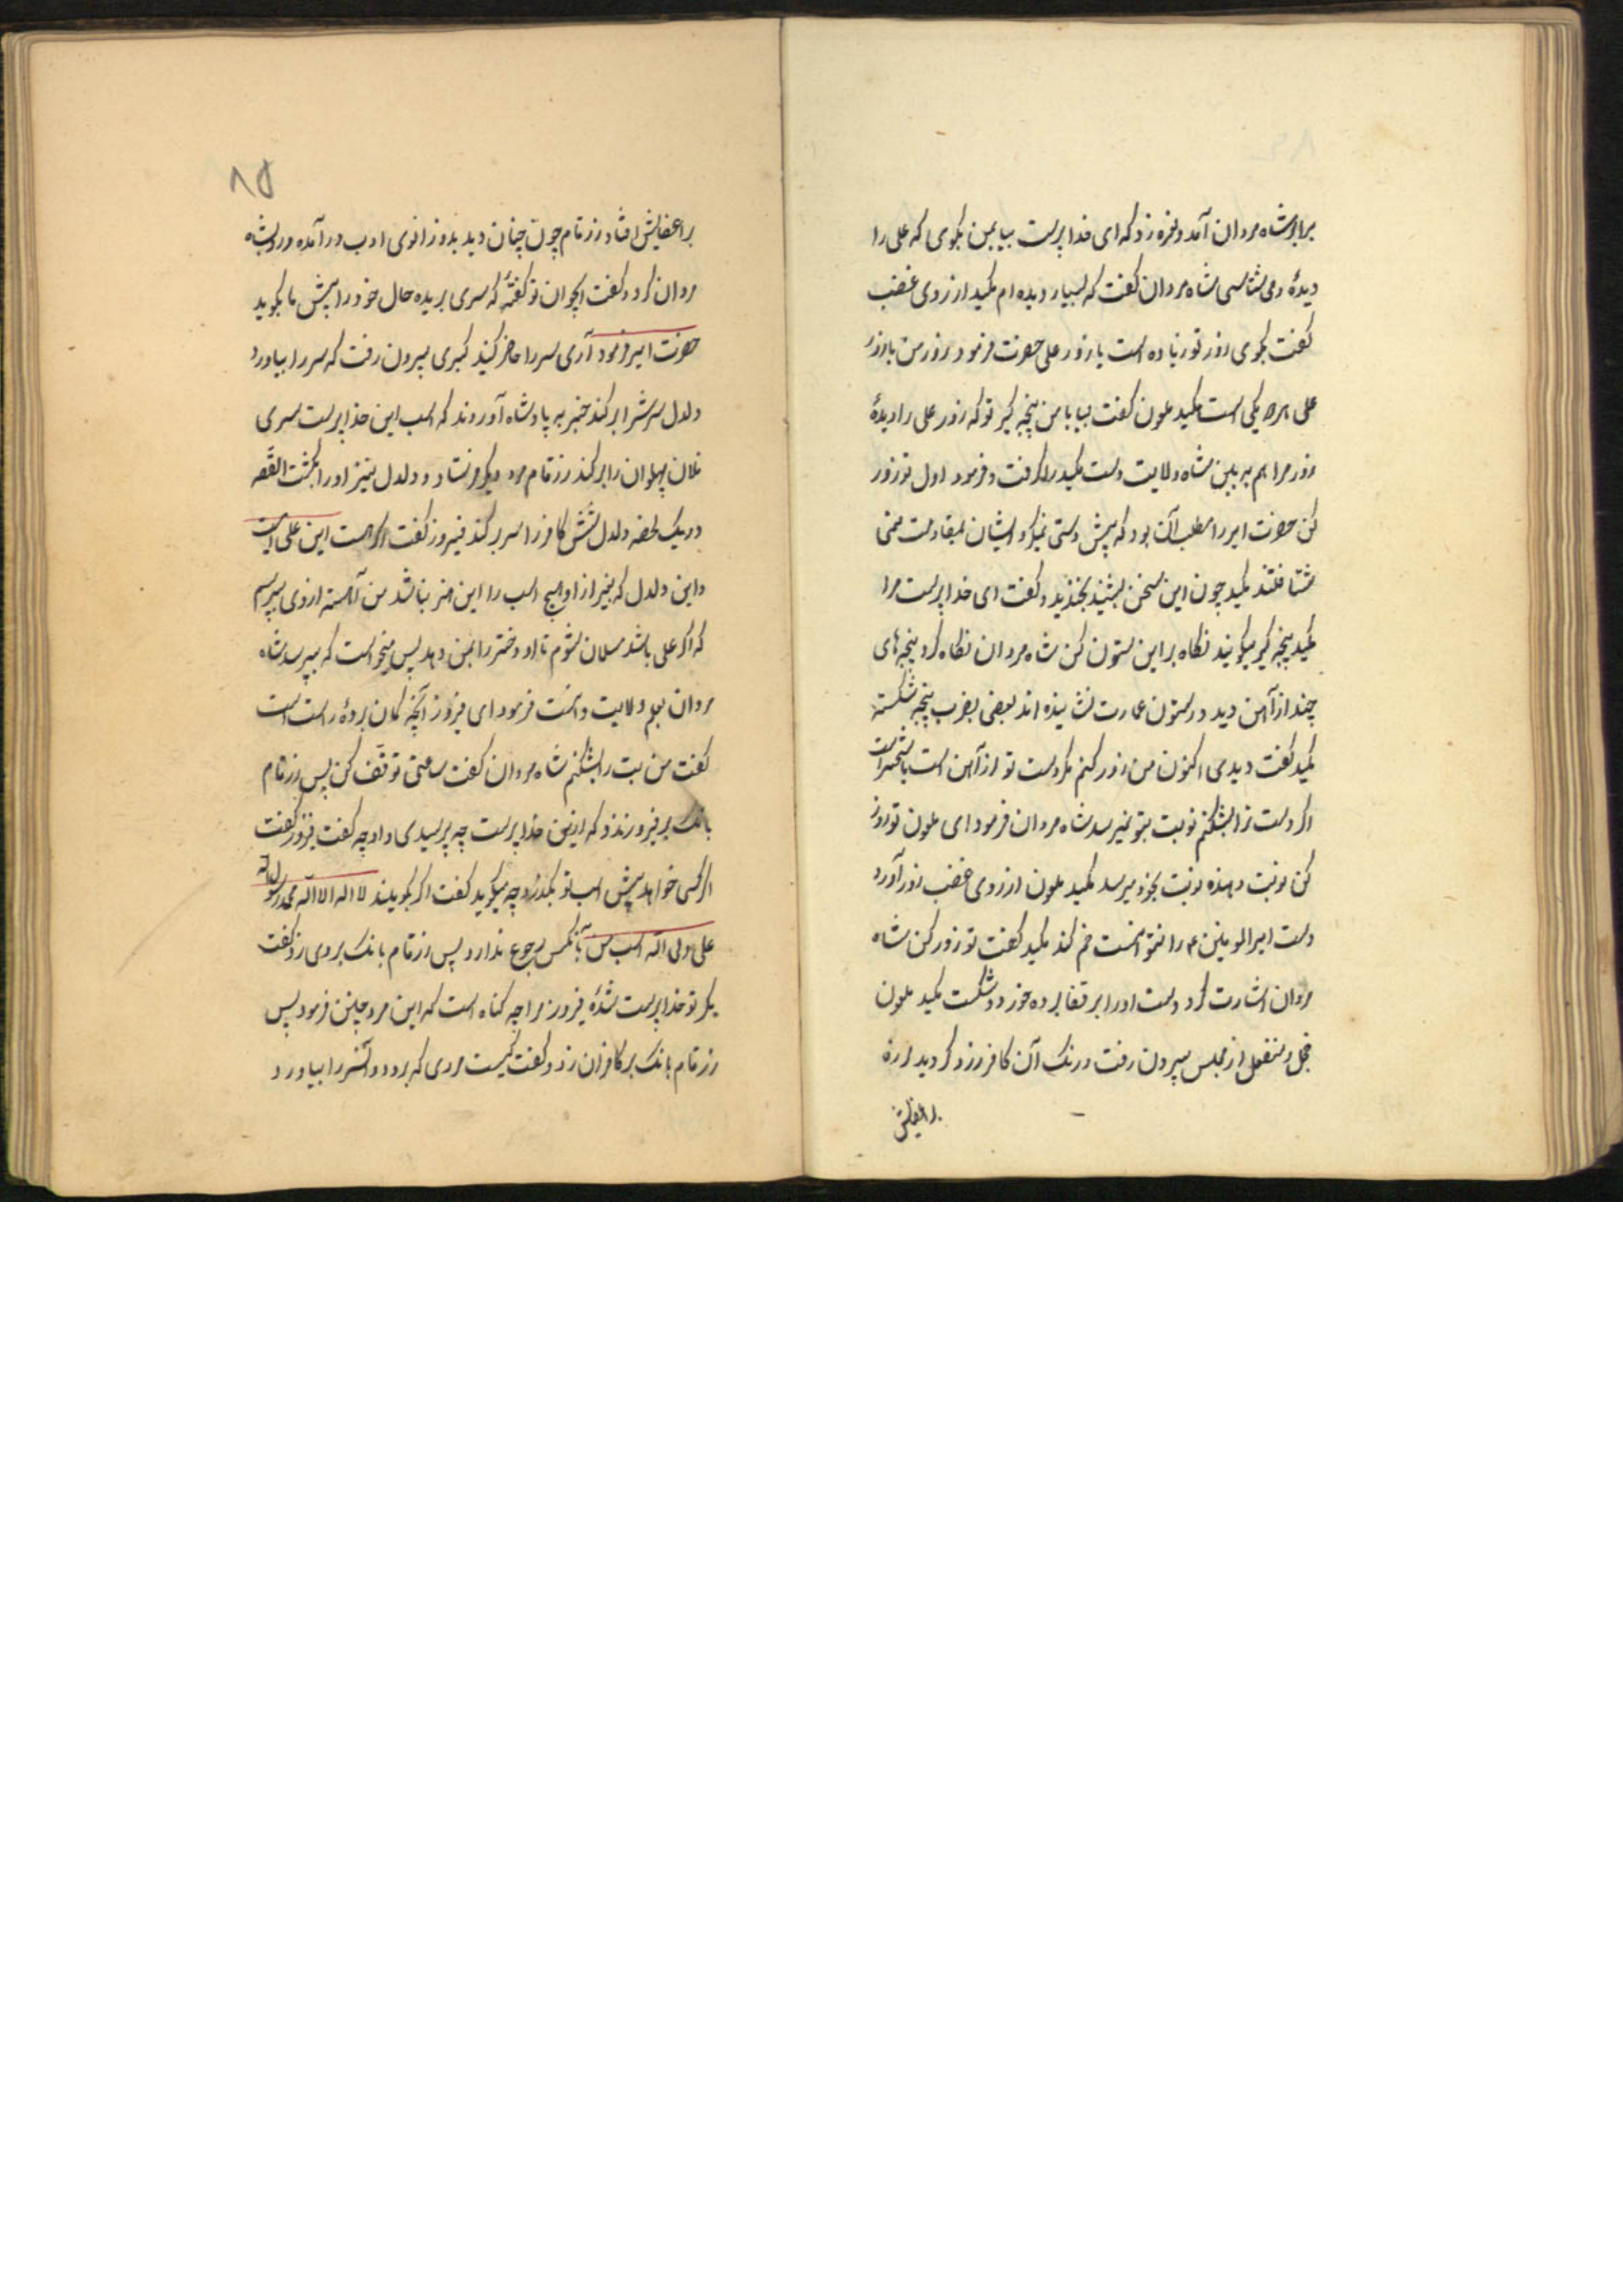 برابر شاه مردان آمد و نعره زد که ای خدا پرست بیا بمن بکوی که علی را
دیدهٔ و می شناسی شاه مردان کفت که بسیار دیده ام مکید از روی غضب
کفت بکوی زور تو زیاده است یا زور علی حضرت فرمود زور من با زور
علی یکی است مکید ملعون کفت بیا با من پنجه کیر تو که زور علی را دیدهٔ
زور مرا هم به بین شاه ولایت دست مکید را کرفت و فرمود اول تو زور
کن حضرت امیر را مطلب آن بود که پیش دستی نمیکرد ایشان بمقاومت
مکید چون این سخن بشنید بخندید و کفت ای خدا پرست مرا
مکید پنجه کیر میکویند نکاه بر این ستون کن شاه مردان نکاه کرد پنجه های
چند از آهن دید در ستون عمارت نشانیده اند بعضی بضرب پنجه شکسته
مکید کفت دیدی اکنون من زور کنم مکر دست تو از آهن است یا
اکر دست ترا بشکنم نوبت بتو نمیرسد شاه مردان فرمود ای ملعون تو زور
کن نوبت دهنده نوبت بخود میرسد مکید ملعون از روی غضب زور آورد
دست امیرالمومنین ع را نتوانست خم کند مکید کفت تو زور کن شاه
مردان اشارت کرد دست او را بر قفا برده خورد و شکست مکید ملعون
خجل و منفعل از مجلس بیرون رفت و رنک آن کافر زرد کردید لرزه
بر اعضایش
۸۵
بر اعضایش افتاد رزتام چون چنان دید بدو زانوی ادب در آمده و رو بشاه
مردان کرد و کفت ایجوان تو کفتهٔ که سری بریده حال خود را پیش ما بکوید
حضرت امیر فرمود آری سر را حاضر کنید کبری بیرون رفت که سر را بیاورد
دلدل سرش را بر کند خبر به پادشاه آوردند که اسب این خدا پرست سری
فلان پهلوان را بر کند رزتام مرد دیکر فرستاد و دلدل نیز او را بکشت القصه
در یک لحضه دلدل شش کافر را سر بر کند فیروز کفت این علی است
و این دلدل که بغیر از او هیچ اسب را این هنر نباشد من آهسته از وی بپرسم
که اکر علی باشد مسلمان شوم تا او دختر را بمن دهد پس میخواست که بپرسد شاه
مردان بعلم ولایت دانست فرمود ای فیروز آنچه کمان بردهٔ راست است
کفت من بت را بشکنم شاه مردان کفت ساعتی توقف کن پس رزتام
بانک بر فیروز زد و که ازین خدا پرست چه پرسیدی و او چه کفت فیروز کفت
اکر کسی خواهد پیش اسب تو بکذرد چه میکوید کفت اکر بکویند لا اله الا الله محمد رسول الله
علی ولی الله اسب من بآنکس رجوع ندارد پس رزتام بانک بر وی زد و کفت
مکر تو خدا پرست شدهٔ فیروز مرا چه کناه است که این مرد چنین فرمود پس
رزتام بانک بر کافران زد و کفت کیست مردی که برود و آنسر را بیاورد